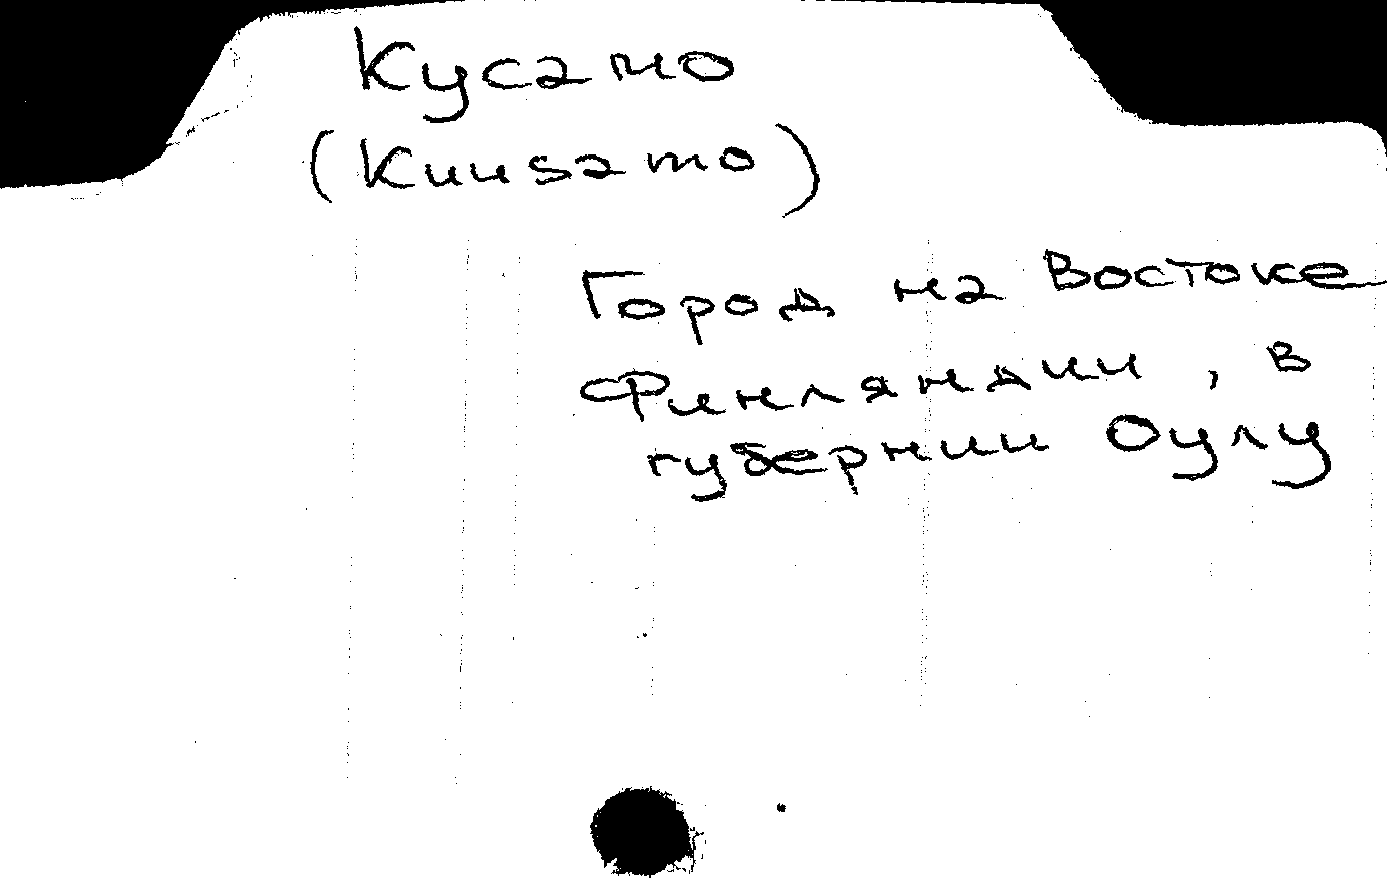 Кусамо
(Kuusamo)
Город на Востоке
Финляндии, в
губернии Оулу